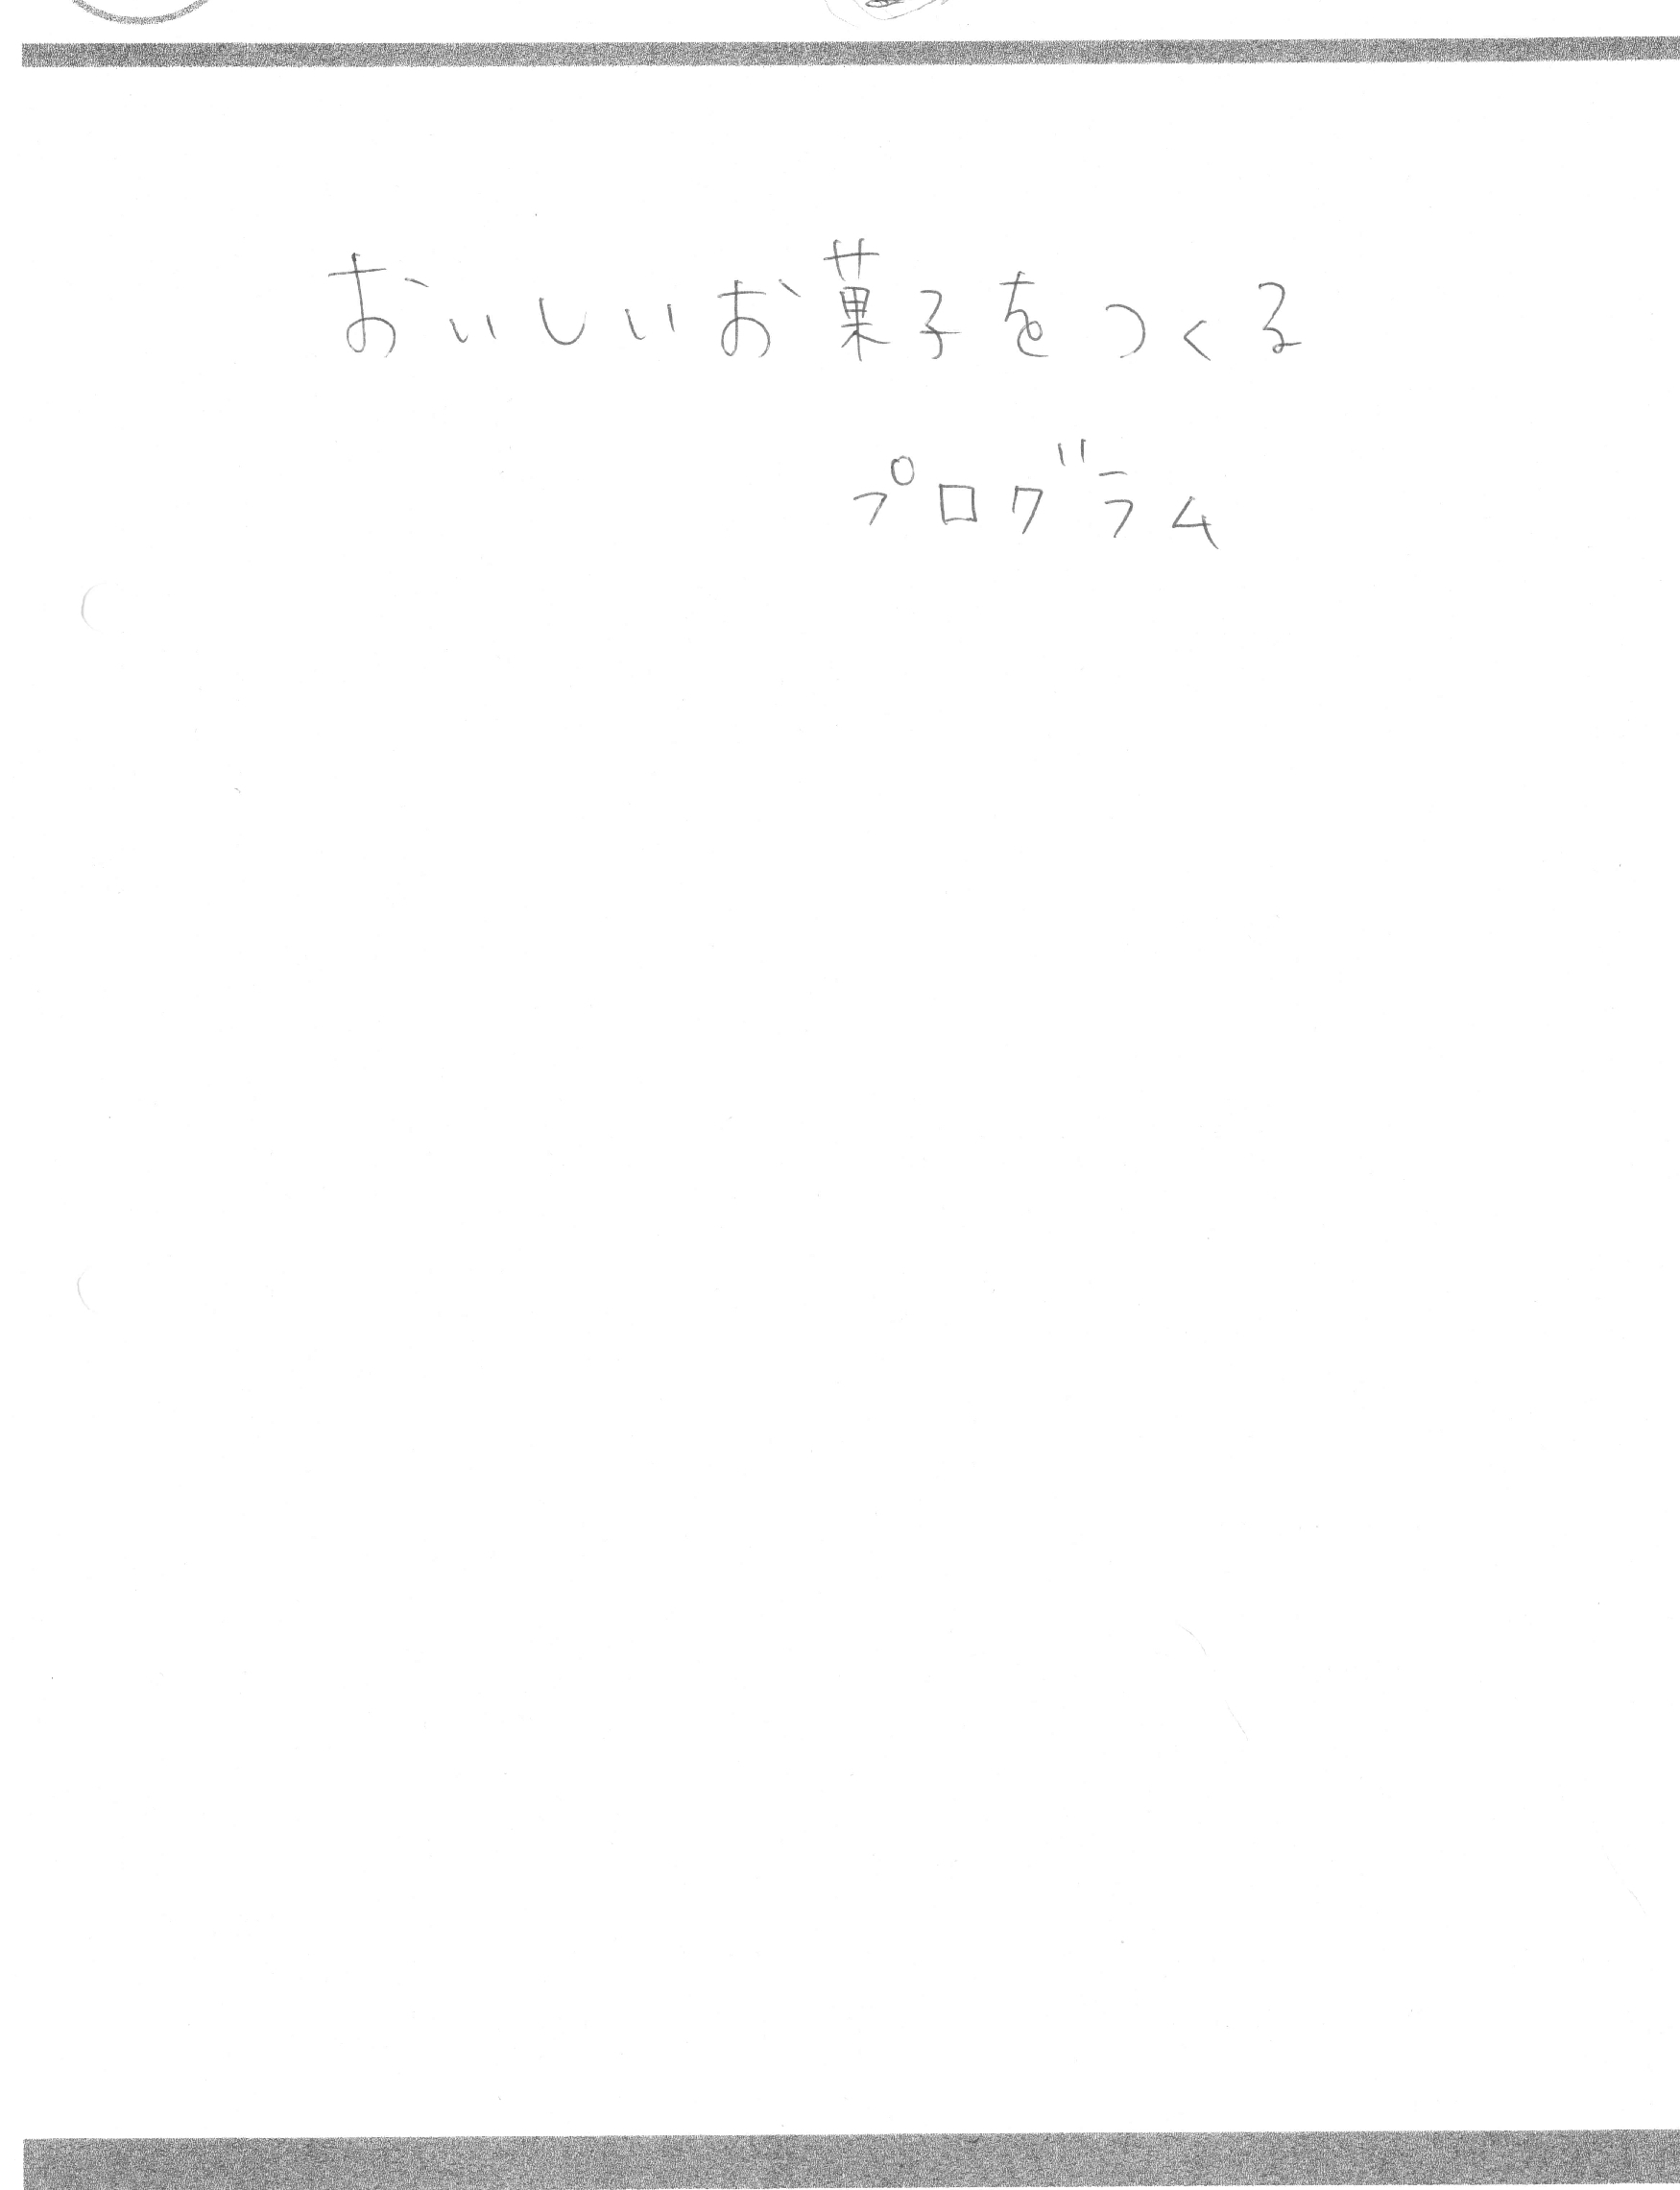 おいしいお菓子をつくる
プログラム